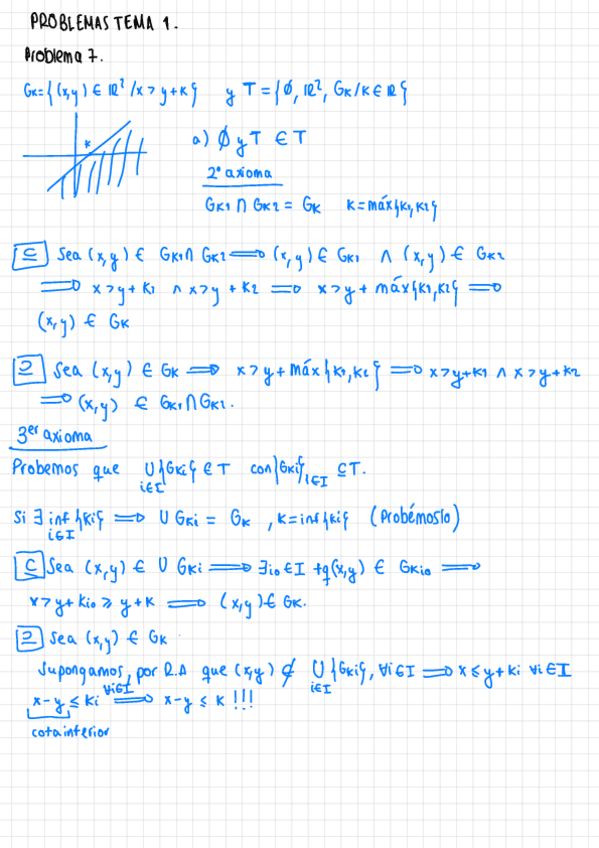 PROBLEMAS TEMA 1.
Problema 7.
Gk={(x,y) ∈ ℝ² / x > y+k} y T = {∅, ℝ², Gk / k ∈ ℝ}
k
a) ∅ y T ∈ T
2º axioma
Gk1 ∩ Gk2 = Gk k=máx{k1,k2}
⊆ Sea (x,y) ∈ Gk1 ∩ Gk2 ⟹ (x,y) ∈ Gk1 ∧ (x,y) ∈ Gk2
⟹ x>y+k1 ∧ x>y+k2 ⟹ x>y+máx{k1,k2} ⟹
(x,y) ∈ Gk
⊇ Sea (x,y) ∈ Gk ⟹ x>y+máx{k1,k2} ⟹ x>y+k1 ∧ x>y+k2
⟹ (x,y) ∈ Gk1 ∩ Gk2.
3er axioma
Probemos que ∪ {Gki} ∈ T con {Gki} i∈I ⊆ T.
i∈I
Si ∃ inf {ki} ⟹ ∪ Gki = Gk , k=inf{ki} (Probémoslo)
i∈I
⊆ Sea (x,y) ∈ ∪ Gki ⟹ ∃i0 ∈ I tq (x,y) ∈ Gki0 ⟹
x>y+ki0 ≥ y+k ⟹ (x,y) ∈ Gk.
⊇ Sea (x,y) ∈ Gk
Supongamos, por R.A que (x,y) ∉ ∪ {Gki}, ∀i∈I ⟹ x ≤ y+ki ∀i∈I
i∈I
x-y ≤ ki ∀i∈I ⟹ x-y ≤ k !!!
cota inferior